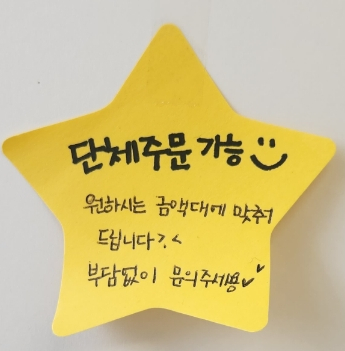 단체주문 가능
원하시는 금액대에 맞춰
드립니다?.<
부담없이 문의주세용